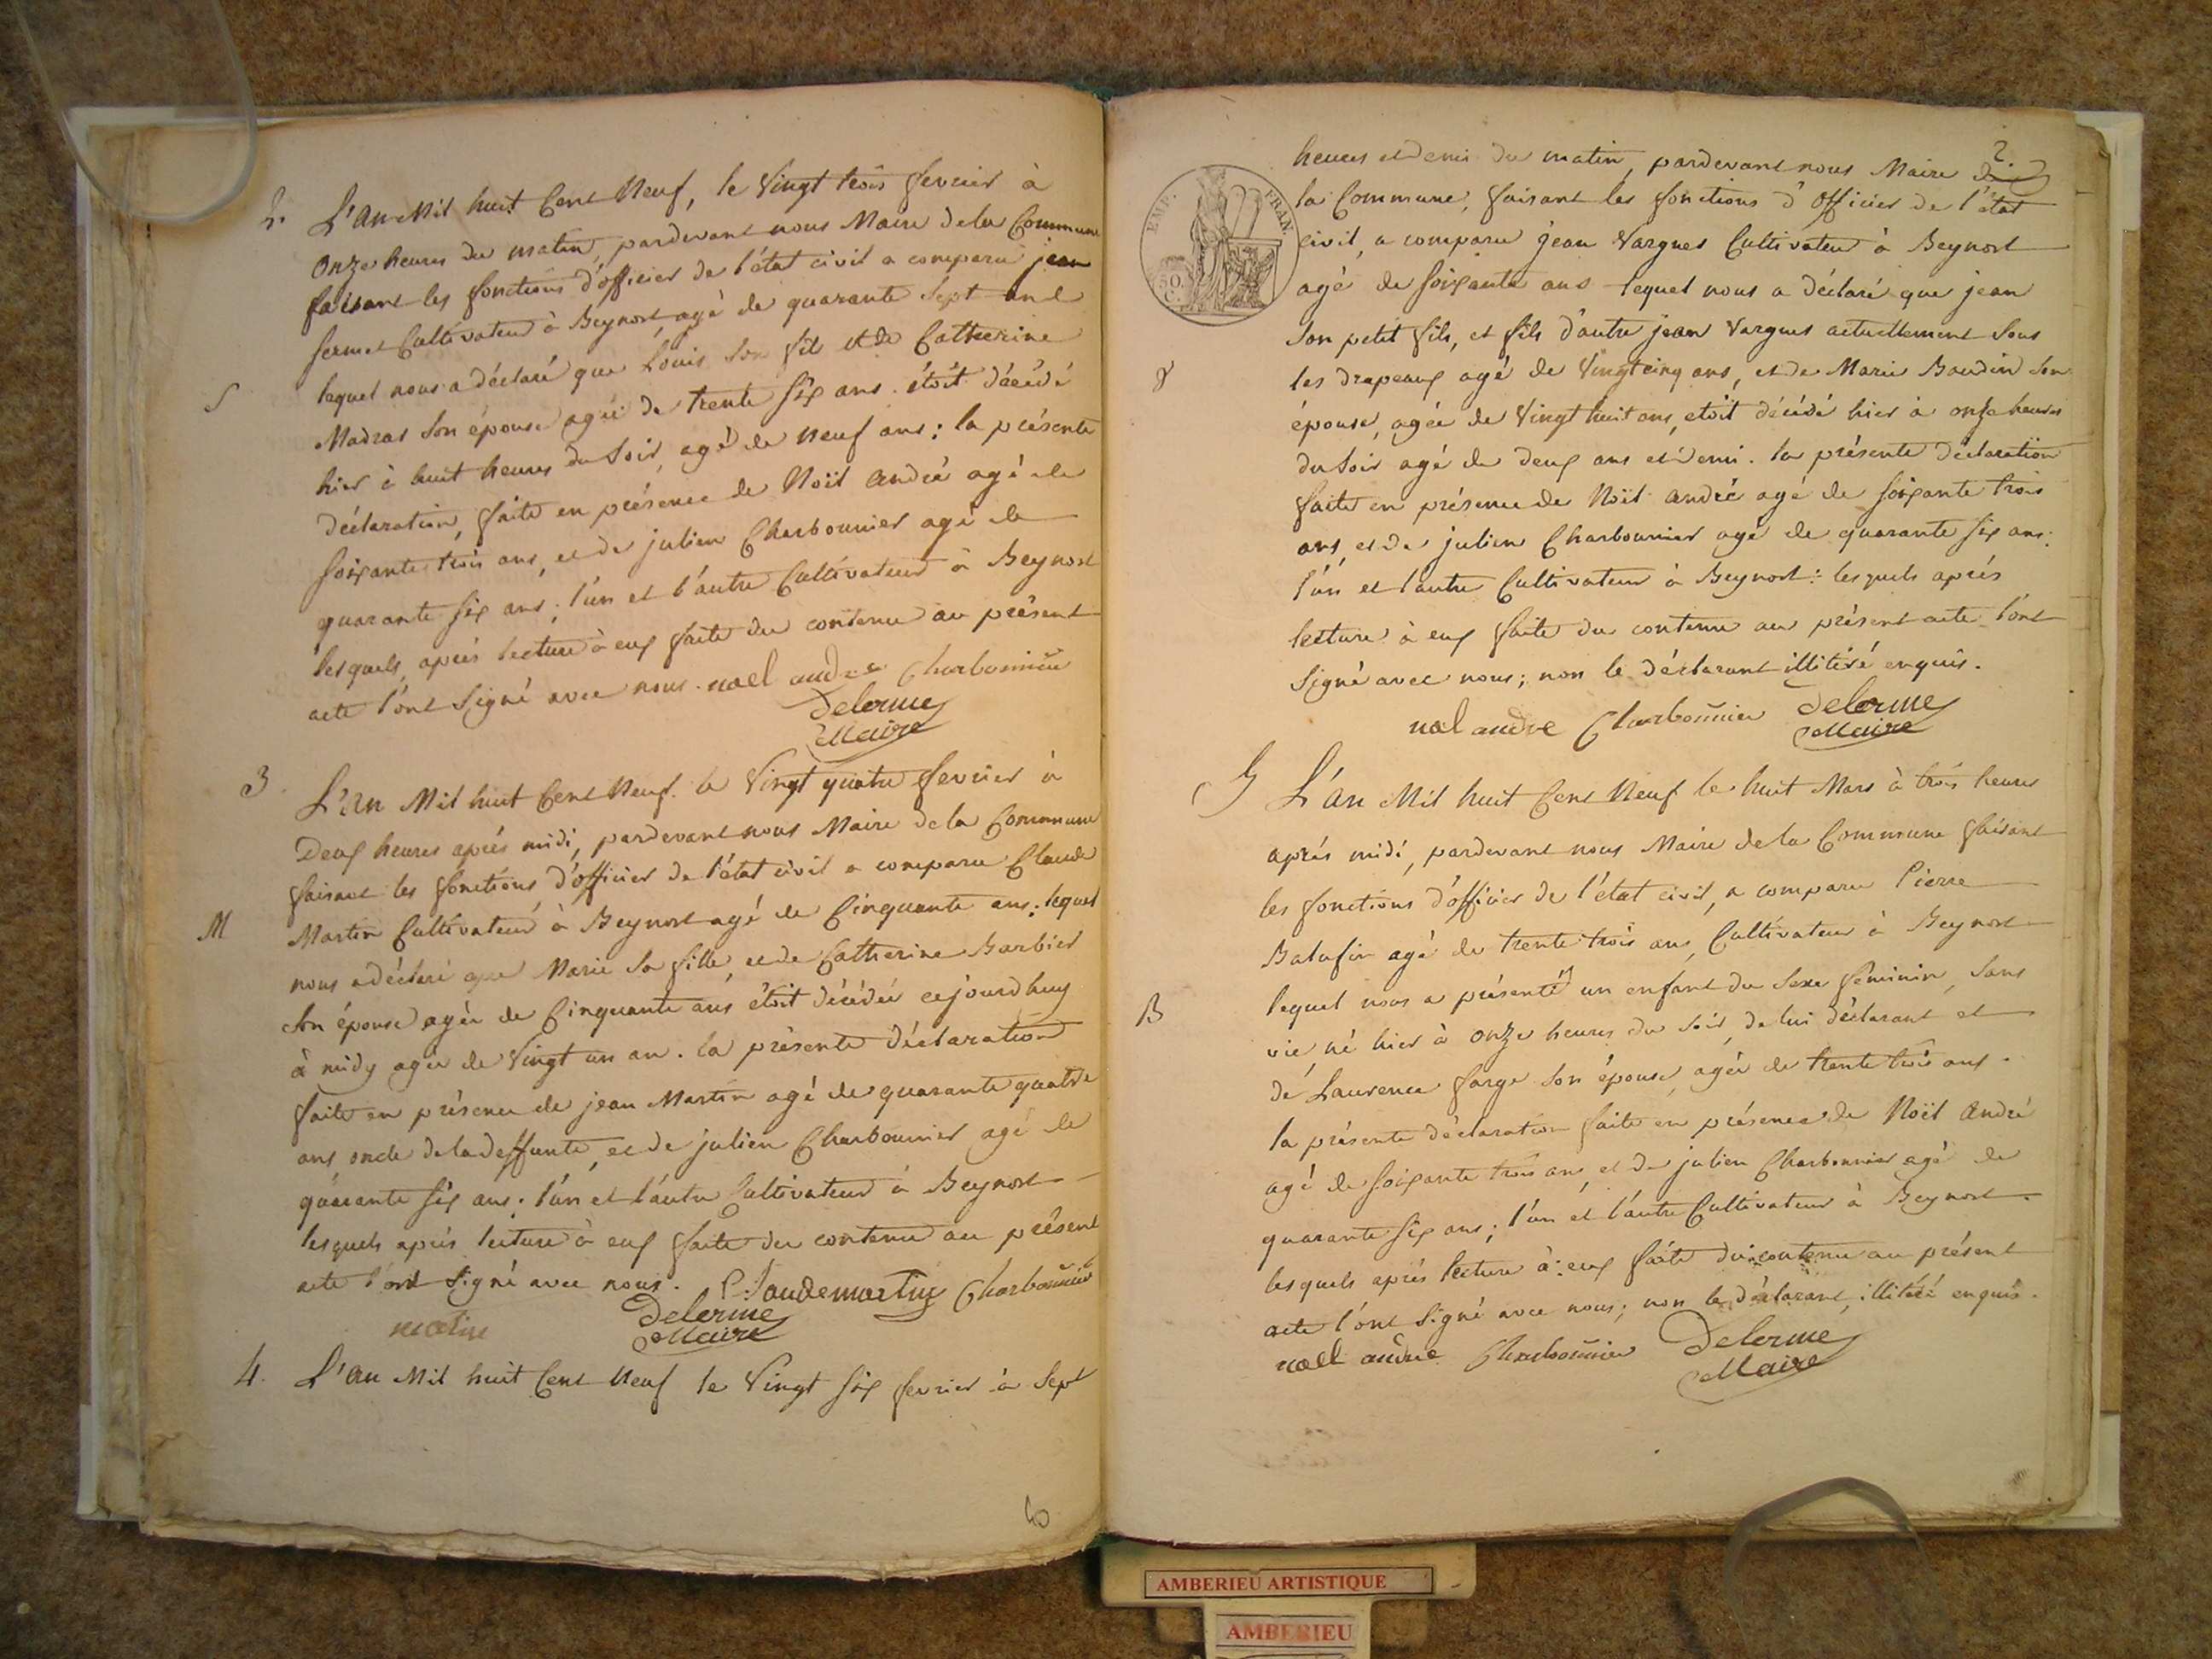 2. L'An Mil huit Cent Neuf, le Vingt trois fevrier à
Onze heures du matin, pardevant nous Maire de la Commune
faisant les fonctions d'officier de l'état civil a comparu jean
fermet Cultivateur à Beynost agé de quarante Sept ans
lequel nous a déclaré que Louis Son fils et de Catherine
S
Madras Son épouse agée de trente six ans étoit décédé
hier à huit heures du Soir, agé de neuf ans; la présente
déclaration, faite en présence de Noël André agé de
soixante trois ans, et de julien Charbonnier agé de
quarante six ans; l'un et l'autre Cultivateur à Beynost
lesquels, après lecture à eux faite du contenu au présent
acte l'ont Signé avec nous. noel andre Charbonnier
Delorme
Maire
3. L'an Mil huit Cent Neuf. le Vingt quatre fevrier à
Deux heures après midi, pardevant nous Maire de la Commune
faisant les fonctions d'officier de l'état civil a comparu Claude
M
Martin Cultivateur à Beynost agé de Cinquante ans; lequel
nous a déclaré que Marie Sa fille, et de Catherine Barbier
Son épouse agée de Cinquante ans étoit décédée cejourdhuy
à midy agée de Vingt un an. la présente déclaration
faite en présence de jean Martin agé de quarante quatre
ans, oncle de la deffunte, et de julien Charbonnier agé de
quarante six ans; l'un et l'autre Cultivateur à Beynost
lesquels après lecture à eux faite du contenu au présent
acte l'ont Signé avec nous. Claudemartin Charbonnier
Delorme
Maire
4. L'An Mil huit Cent Neuf le Vingt six fevrier à Sept
2.
heures et demi du matin, pardevant nous Maire de
la Commune, faisant les fonctions d'Officier de l'état
civil, a comparu jean Vargues Cultivateur à Beynost
agé de soixante ans lequel nous a déclaré que jean
Son petit fils, et fils d'autre jean Vargues actuellement Sous
les drapeaux agé de Vingt cinq ans, et de Marie Baudin Son
épouse, agée de Vingt huit ans, etoit décédé hier à onze heures
du Soir agé de deux ans et demi. la présente déclaration
faite en présence de Noël André agé de soixante trois
ans, et de julien Charbonnier agé de quarante six ans;
l'un et l'autre Cultivateur à Beynost: lesquels après
lecture à eux faite du contenu au présent acte l'ont
Signé avec nous; non le déclarant illitéré enquis.
noel andre Charbonnier Delorme
Maire
EMP. FRAN
50.
C.
5 L'An Mil huit Cent Neuf le huit Mars à trois heures
après midi, pardevant nous Maire de la Commune faisant
les fonctions d'officier de l'état civil, a comparu Pierre
Balufin agé de trente trois ans, Cultivateur à Beynost
B
lequel nous a présenté un enfant du Sexe féminin, Sans
vie né hier à onze heures du Soir, de lui déclarant et
de Laurence farge Son épouse, agée de trente trois ans.
la présente déclaration faite en présence de Noël André
agé de soixante trois ans, et de julien Charbonnier agé de
quarante six ans; l'un et l'autre Cultivateur à Beynost.
lesquels après lecture à eux faite du contenu au présent
acte l'ont Signé avec nous; non le déclarant, illitéré enquis.
noel andre Charbonnier Delorme
Maire
AMBERIEU ARTISTIQUE
AMBERIEU